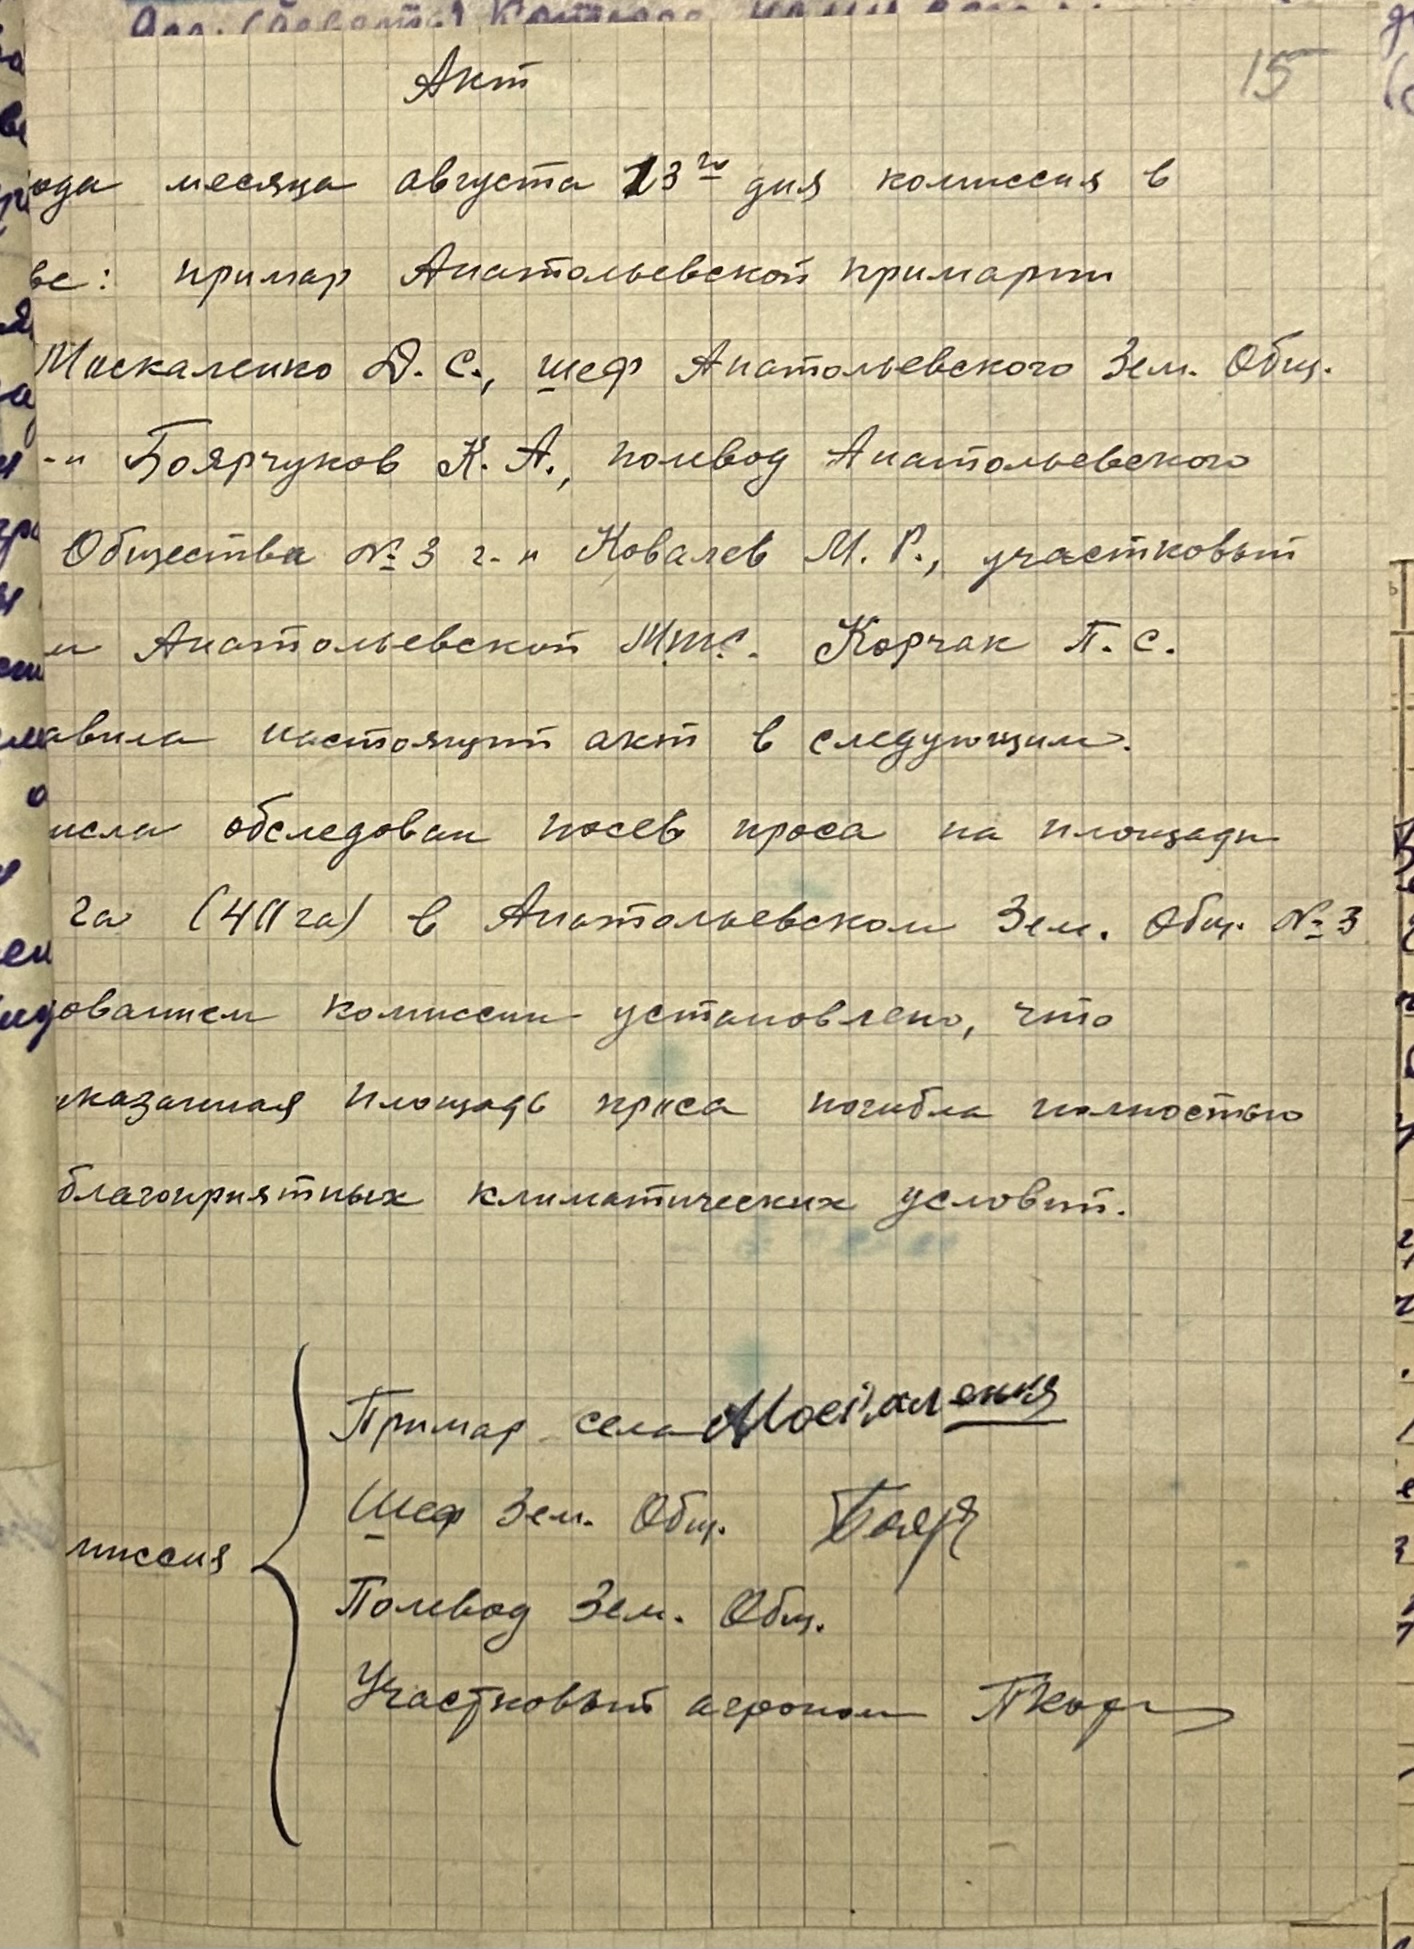 Акт
15
ода месяца августа 13го дня комиссия в
ве: примар Анатольевской примарии
Москаленко Д. С., шеф Анатольевского Зем. Общ.
-н Боярчуков К. А., полевод Анатольевского
Общества № 3 г-н Ковалев М. Р., участковый
м Анатольевской М.т.с. Корчак П. С.
авила настоящий акт в следующим.
исла обследован посев проса на площади
га (411 га) в Анатольевском Зем. Общ. № 3
дованием комиссии установлено, что
указанная площадь проса погибла полностью
благоприятных климатических условий.
Примар села Москаленко
Шеф Зем. Общ. Бояр
миссия
Полевод Зем. Общ.
Участковый агроном ПКор